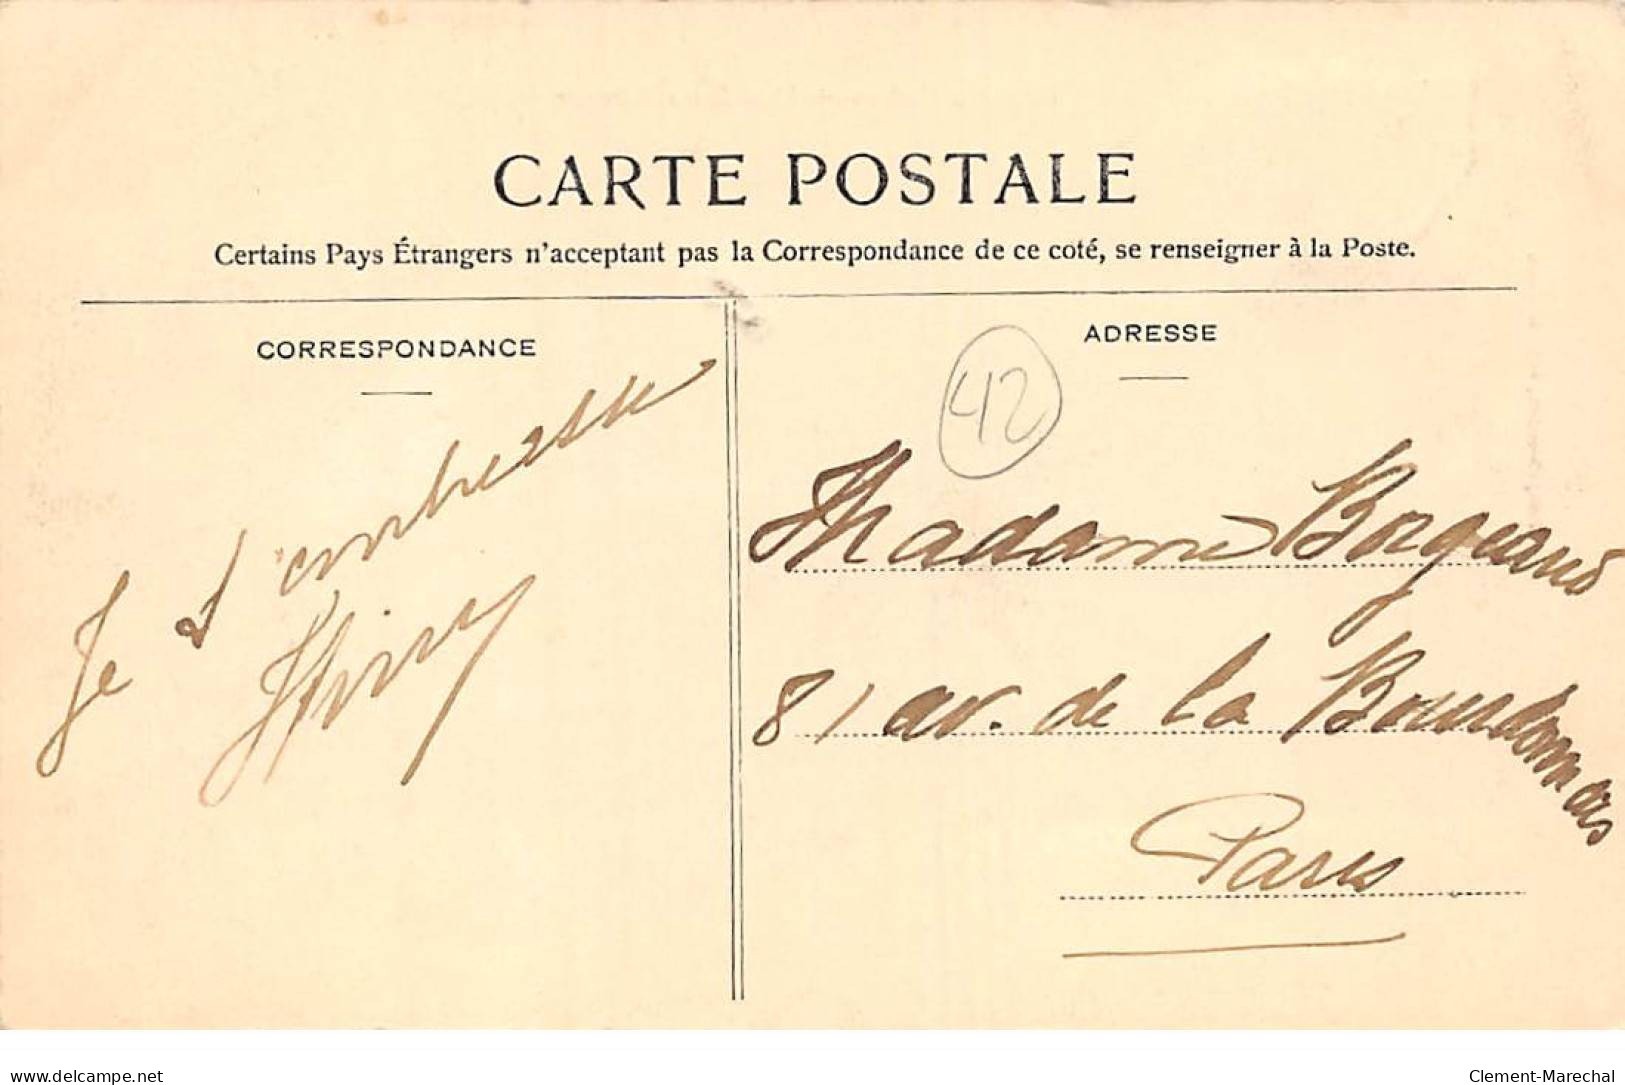 CARTE POSTALE
Certains Pays Étrangers n'acceptant pas la Correspondance de ce coté, se renseigner à la Poste.
CORRESPONDANCE
Je t'embrasse
ADRESSE
42
Madame Borgeaud
81 av. de la Bourdonnais
Paris
delcampe.net
Clement-Marechal